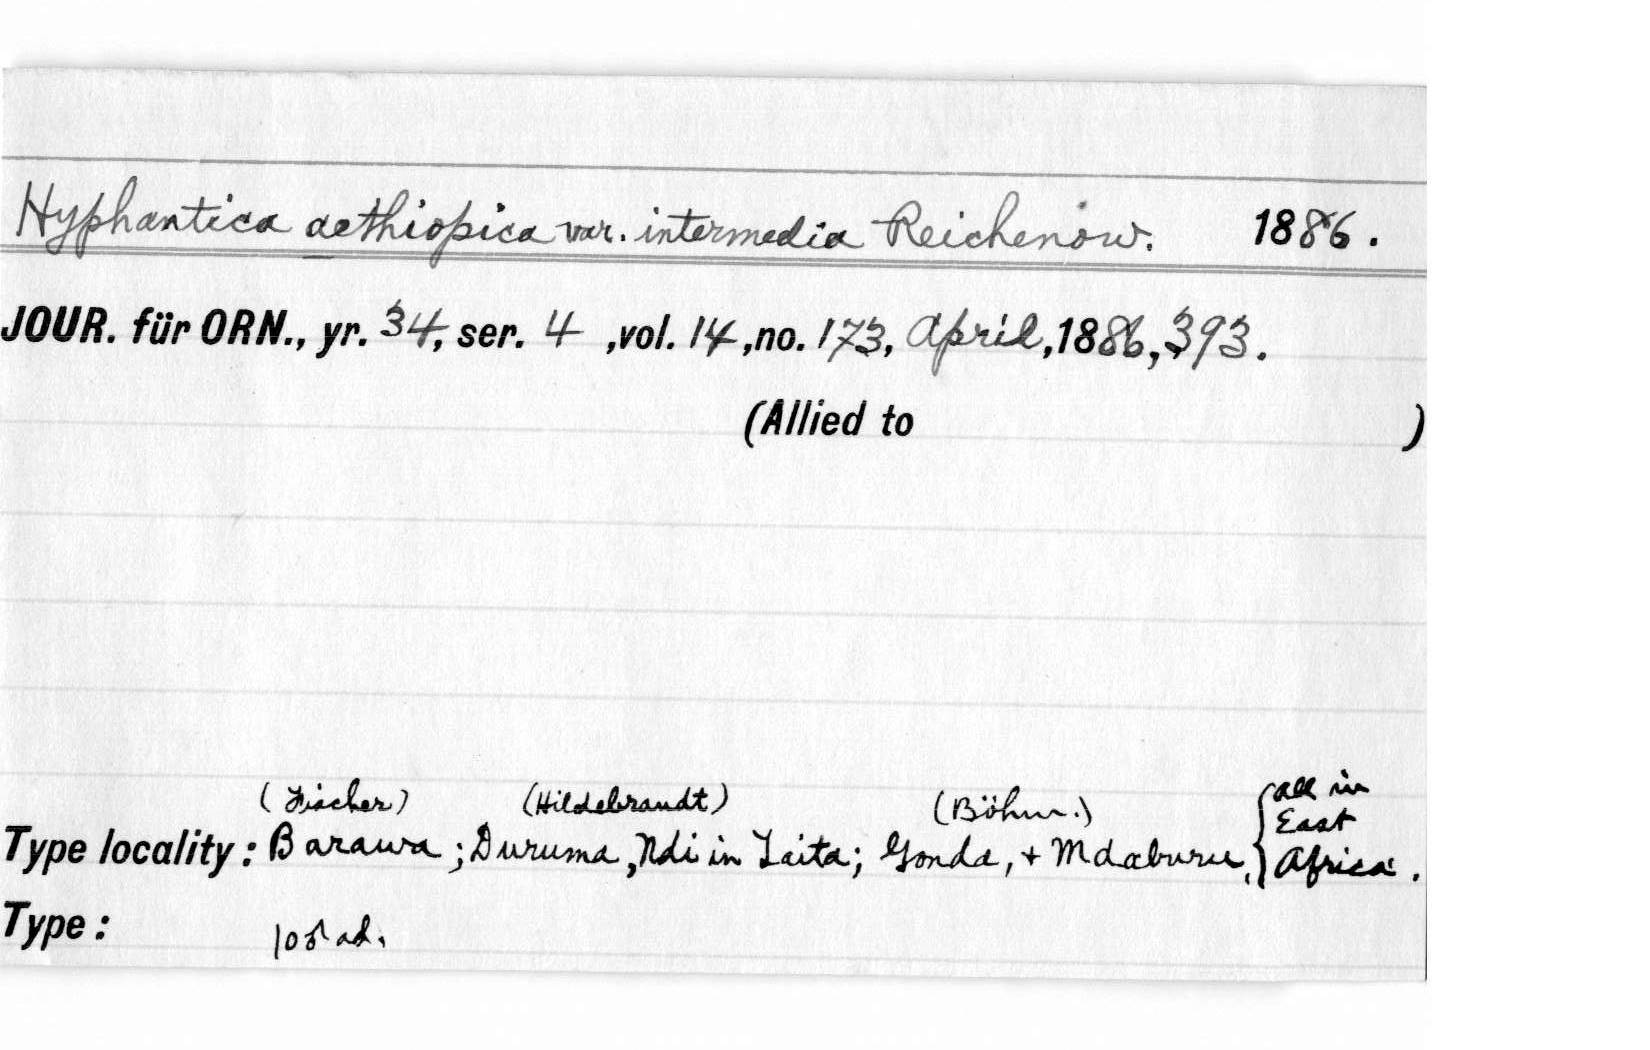 Hyphantica aethiopica var. intermedia Reichenow. 1886.
JOUR. für ORN., yr. 34, ser. 4 ,vol. 14 ,no. 173, April, 1886, 393.
(Allied to )
(Fischer) (Hildebrandt) (Böhm.) all in
East
Type locality: Barawa ; Duruma, Ndi in Taita; Gonda, + Mdaburu, Africa.
Type: 10♂ ad.